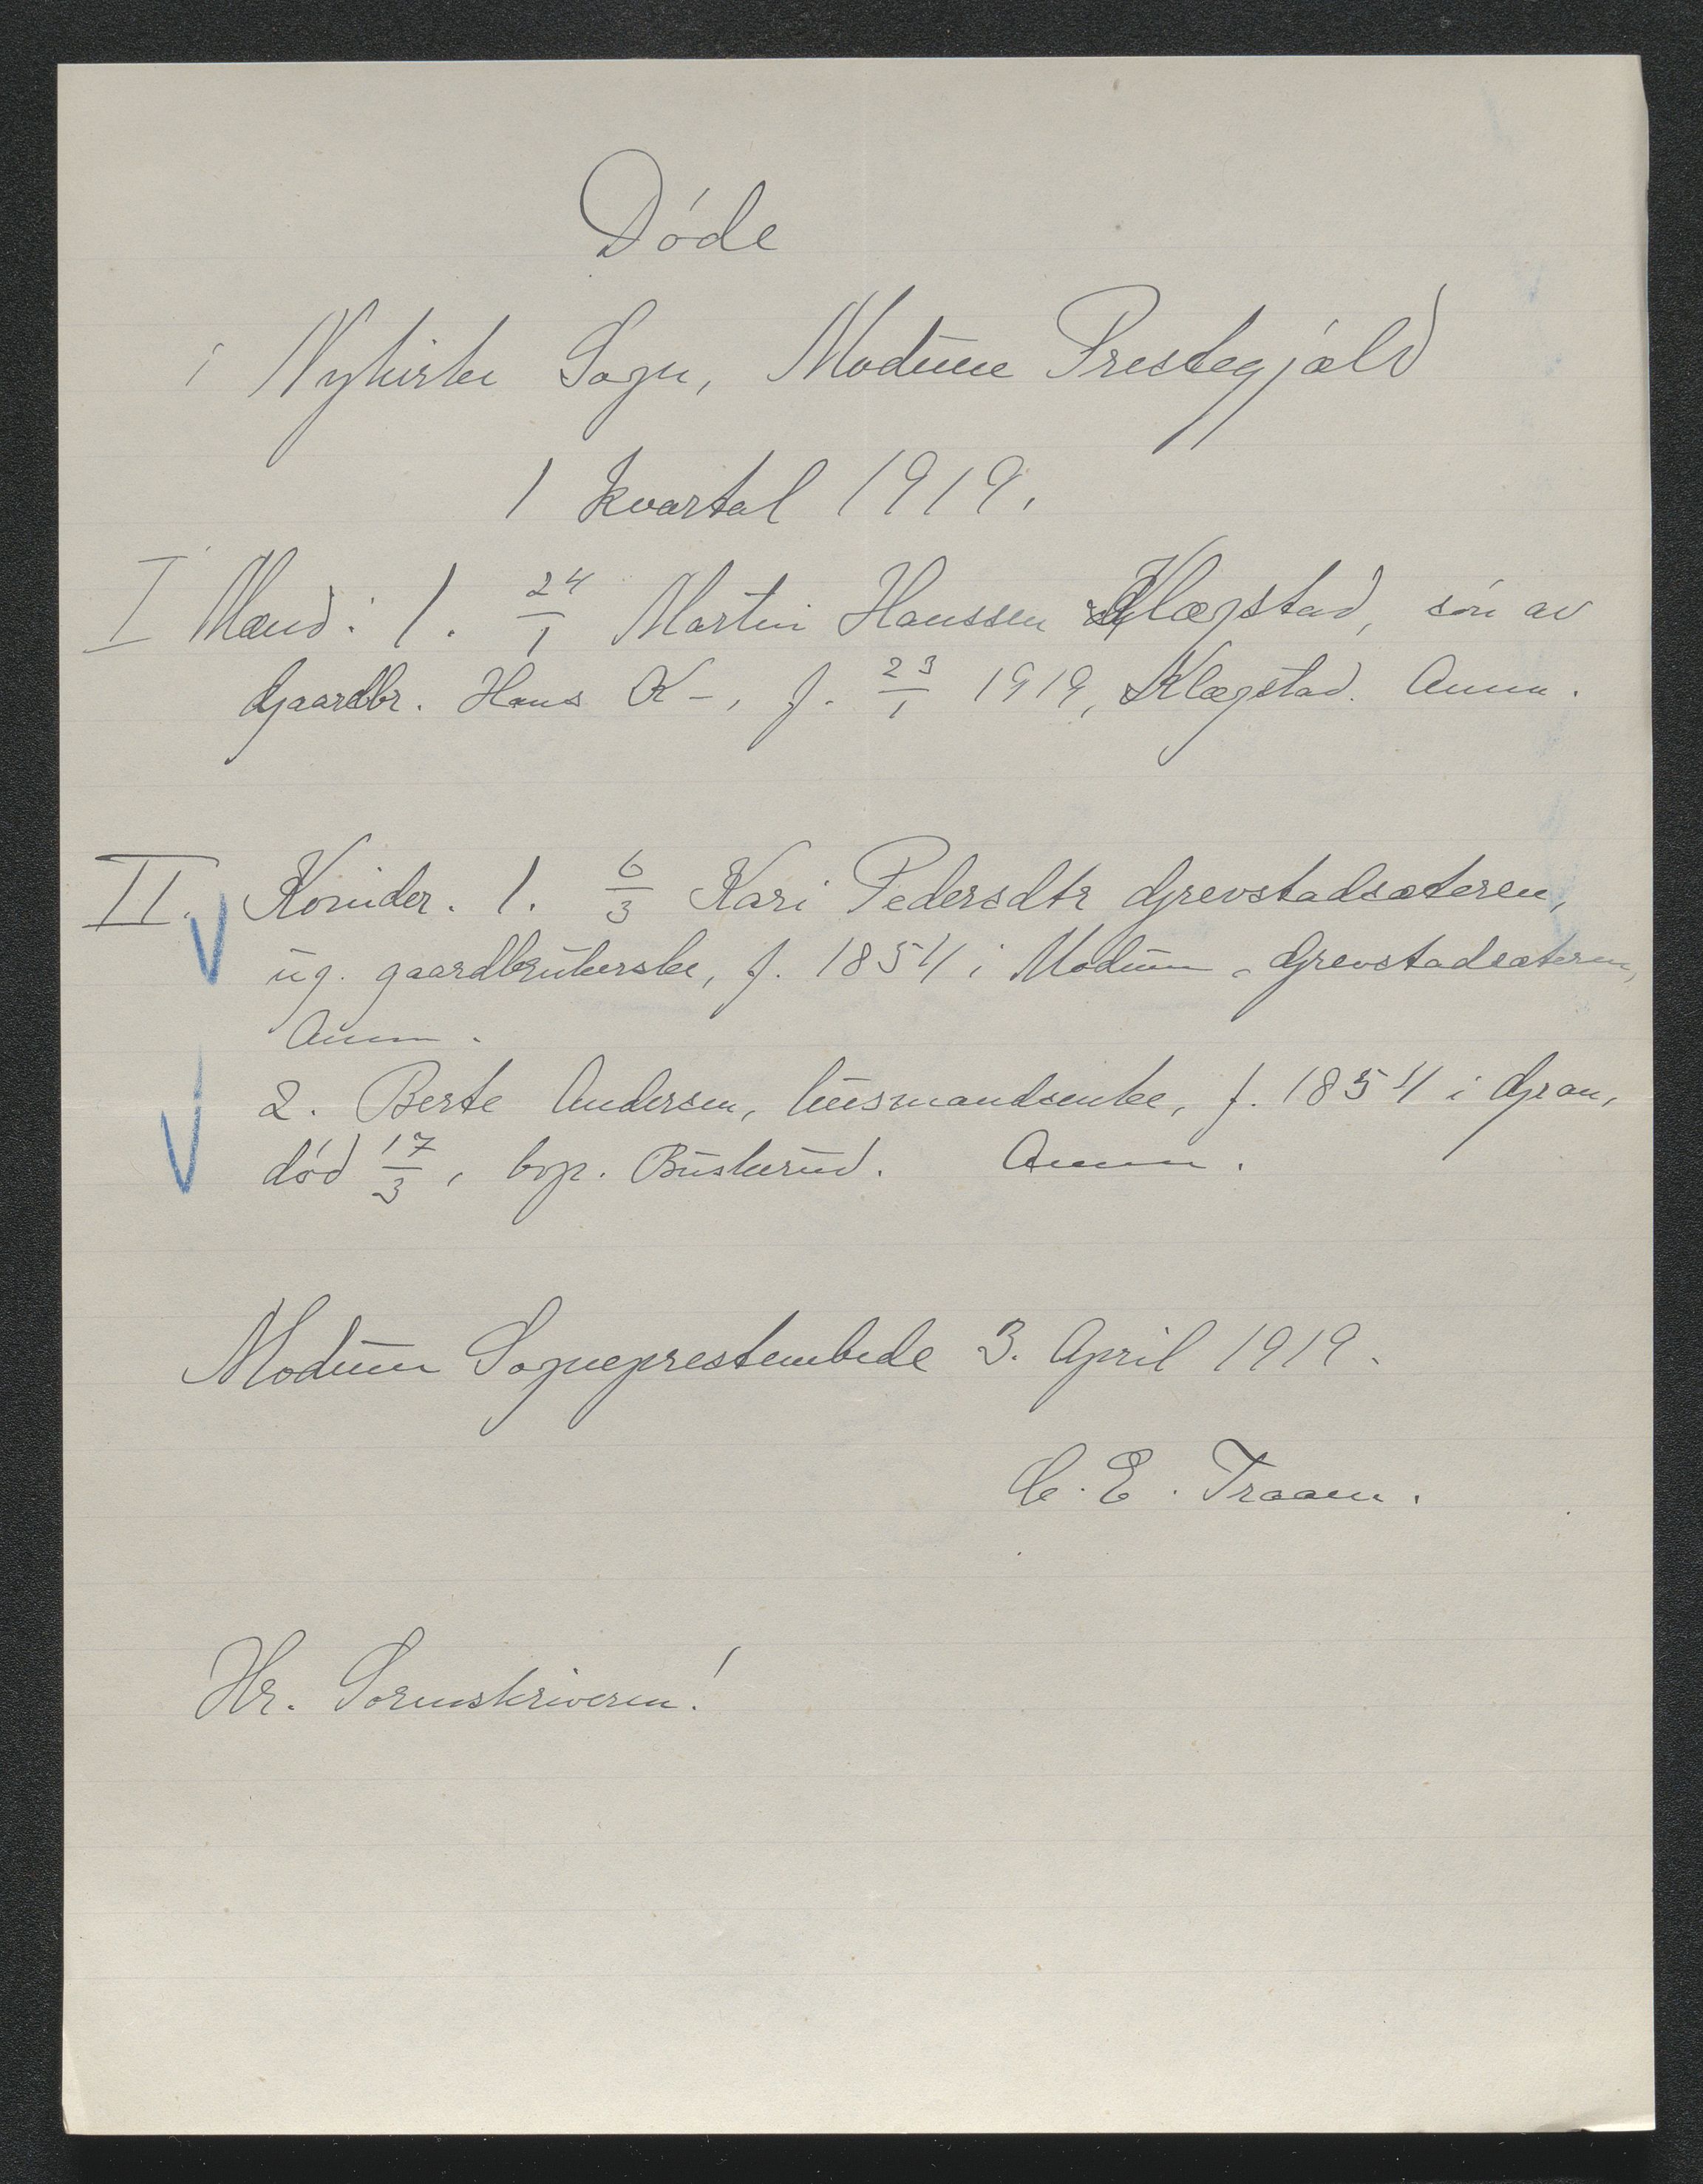 Døde
i Nykirke Sogn, Modum Prestegjæld
1 Kvartal 1919.
I Mænd: 1. 24/1 Martin Hanssen Klægstad, søn av
Gaardbr. Hans K-, f. 23/1 1919, Klægstad. Anm.
II. Kvinder. 1. 6/3 Kari Pedersdtr Grevstadsæteren,
ug. gaardbrukerske, f. 1854 i Modum. Grevstadsæteren,
Anm.
2. Berte Andersen, husmandsenke, f. 1854 i Gran,
død 17/3, bop. Buskerud. Anm.
Modum Sogneprestembede 3. April 1919.
C. E. Traaen.
Hr. Sorenskriveren!